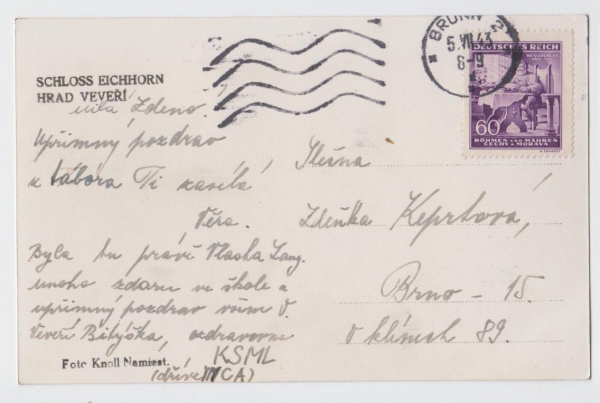 SCHLOSS EICHHORN
HRAD VEVEŘÍ
milá Zdeno!
Upřímný pozdrav
z tábora Ti zasílá
Věra.
Byla tu právě Vlasta Lang.
mnoho zdaru ve škole a
upřímný pozdrav vám V.
Veveří Bitýška, ozdravovna
KSML
(dříve YMCA)
Foto Knoll Namiest.
BRÜNN 2
5.VII.43
8-9
DEUTSCHES REICH
60
BÖHMEN UND MÄHREN
ČECHY A MORAVA
Slečna
Zdeňka Keprtová,
Brno - 15.
V klínech 89.